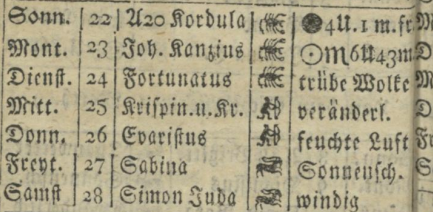 Sonn. 22 A20 Kordula ●4U.1m.fr
Mont. 23 Joh. Kanzius ☉♏6U43m
Dienst. 24 Fortunatus trübe Wolke
Mitt. 25 Krispin.u.Kr. veränderl.
Donn. 26 Evaristus feuchte Luft
Freyt. 27 Sabina Sonnensch.
Samst 28 Simon Juda windig